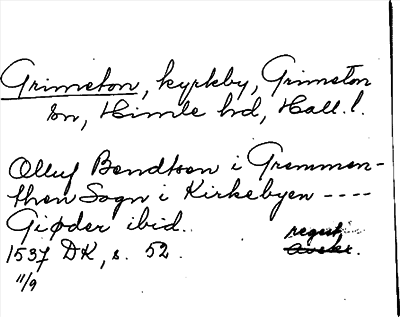 Grimeton, kyrkby, Grimeton
sn, Himle hd, Hall. l.
Olluf Bendtson i Gremmen-
then Sogn i Kirkebyen ----
Giøder ibid.
1537 DK, s. 52. regest
11/9